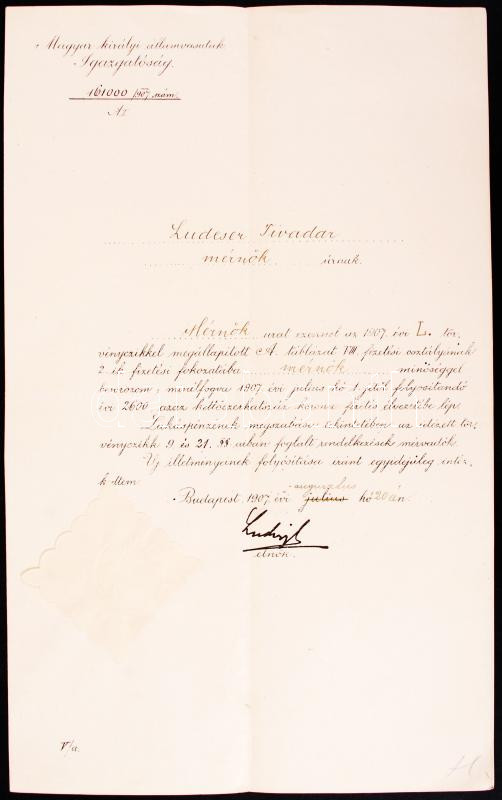 Magyar királyi államvasutak
Igazgatóság.
161000/907. szám.
A I
Ludeser Tivadar
mérnök úrnak.
Mérnök urat ezennel az 1907. évi L. tör-
vényczikkel megállapitott A. táblázat VIII fizetési osztályának
2 ik fizetési fokozatába mérnök minőséggel
besorozom, minélfogva 1907 évi julius hó 1 jétől folyósitandó
évi 2600 azaz kettőezerhatszáz korona fizetés élvezetébe lép.
Lakáspénzének megszabása tekintetében az idézett tör-
vényczikk 9 és 21. §§ aiban foglalt rendelkezések mérvadók.
Uj illetményeinek folyósitása iránt egyidejüleg intéz-
kedtem.
augusztus
Budapest, 1907 évi julius hó 20 án.
Ludvigh
elnök.
V/a.